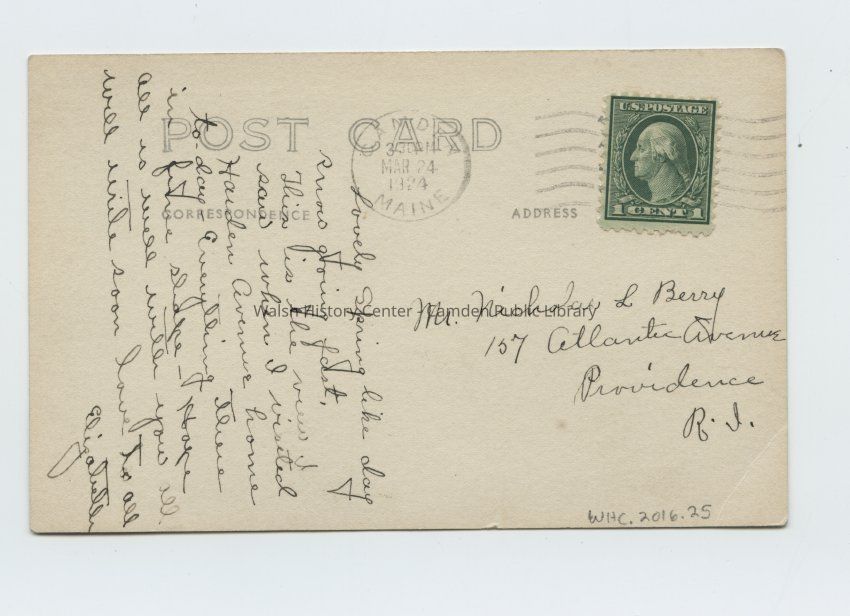 POST CARD
CAMDEN
3 30 PM
MAR 24
1924
MAINE
U.S. POSTAGE
1 CENT 1
CORRESPONDENCE
ADDRESS
Lovely Spring like day
snow going fast,
This is the view I
saw when I visited
Haiden Avenue home
to day Everything there
in fine shape - Hope
all is well with you all.
will write soon love to all
Elizabeth
Mr. Nicholas L Berry
157 Atlantic Avenue
Providence
R. I.
Walsh History Center - Camden Public Library
WHC. 2016.25